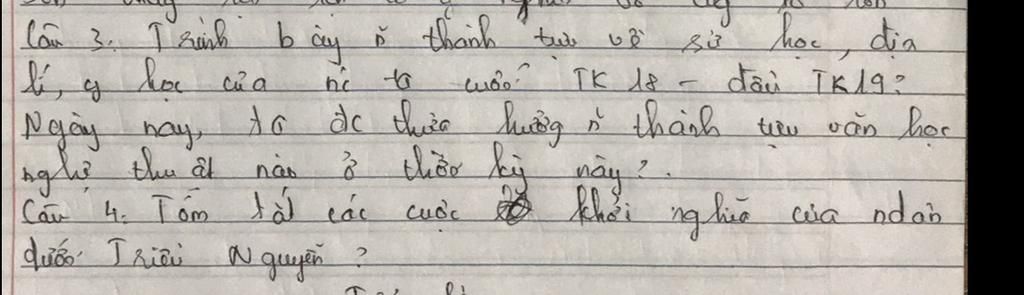 Câu 3: Trình bày n~ thành tựu về sử học, địa
lí, y học của nc ta cuối TK 18 - đầu TK19?
Ngày nay, ta đc thừa hưởng n~ thành tựu văn học
nghệ thuật nào ở thời kỳ này?.
Câu 4: Tóm tắt các cuộc khởi nghĩa của ndân
dưới Triều Nguyễn?